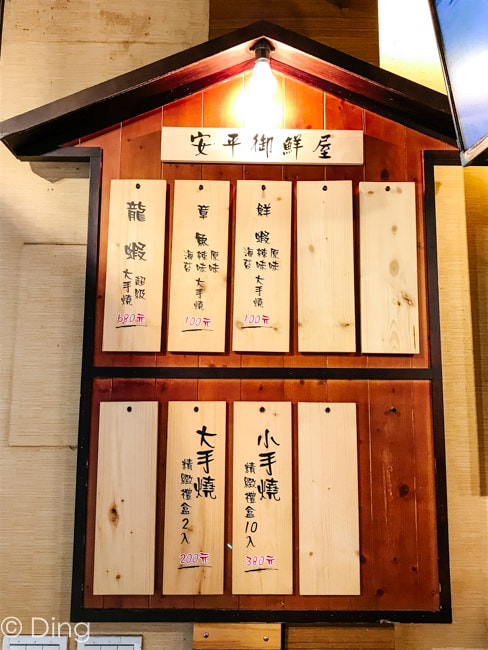 安平御鮮屋
龍蝦
超級
大手燒
680元
章魚
原味
辣味
海苔
大手燒
100元
鮮蝦
原味
辣味
海苔
大手燒
100元
大手燒
精緻禮盒2入
200元
小手燒
精緻禮盒10入
380元
© Ding